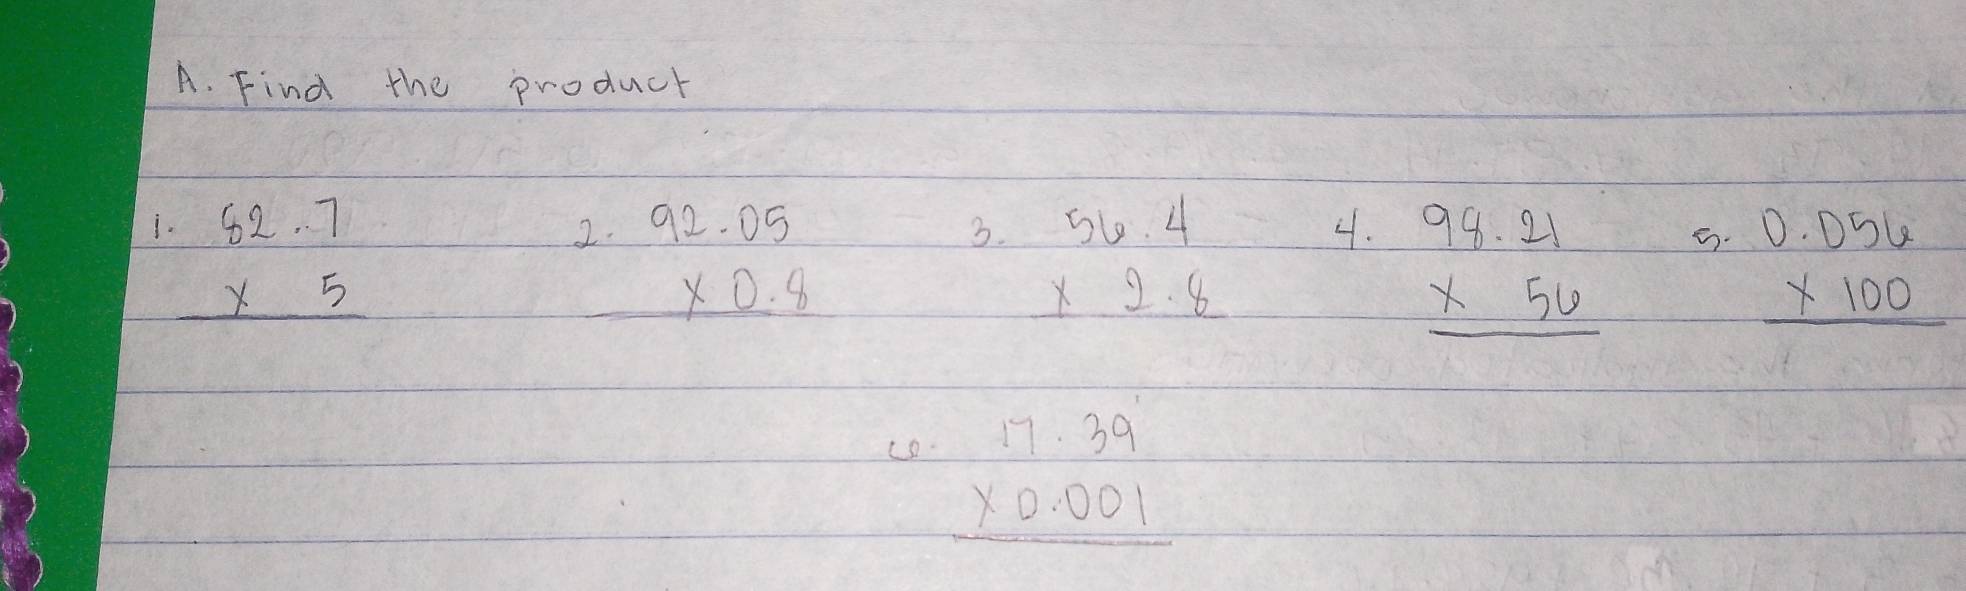 A. Find the product
1. 82.7 2. 92.05 3. 56.4 4. 98.21 5. 0.056
x 5 x 0.8 x 2.8 x 56 x 100
6. 17.39
x 0.001